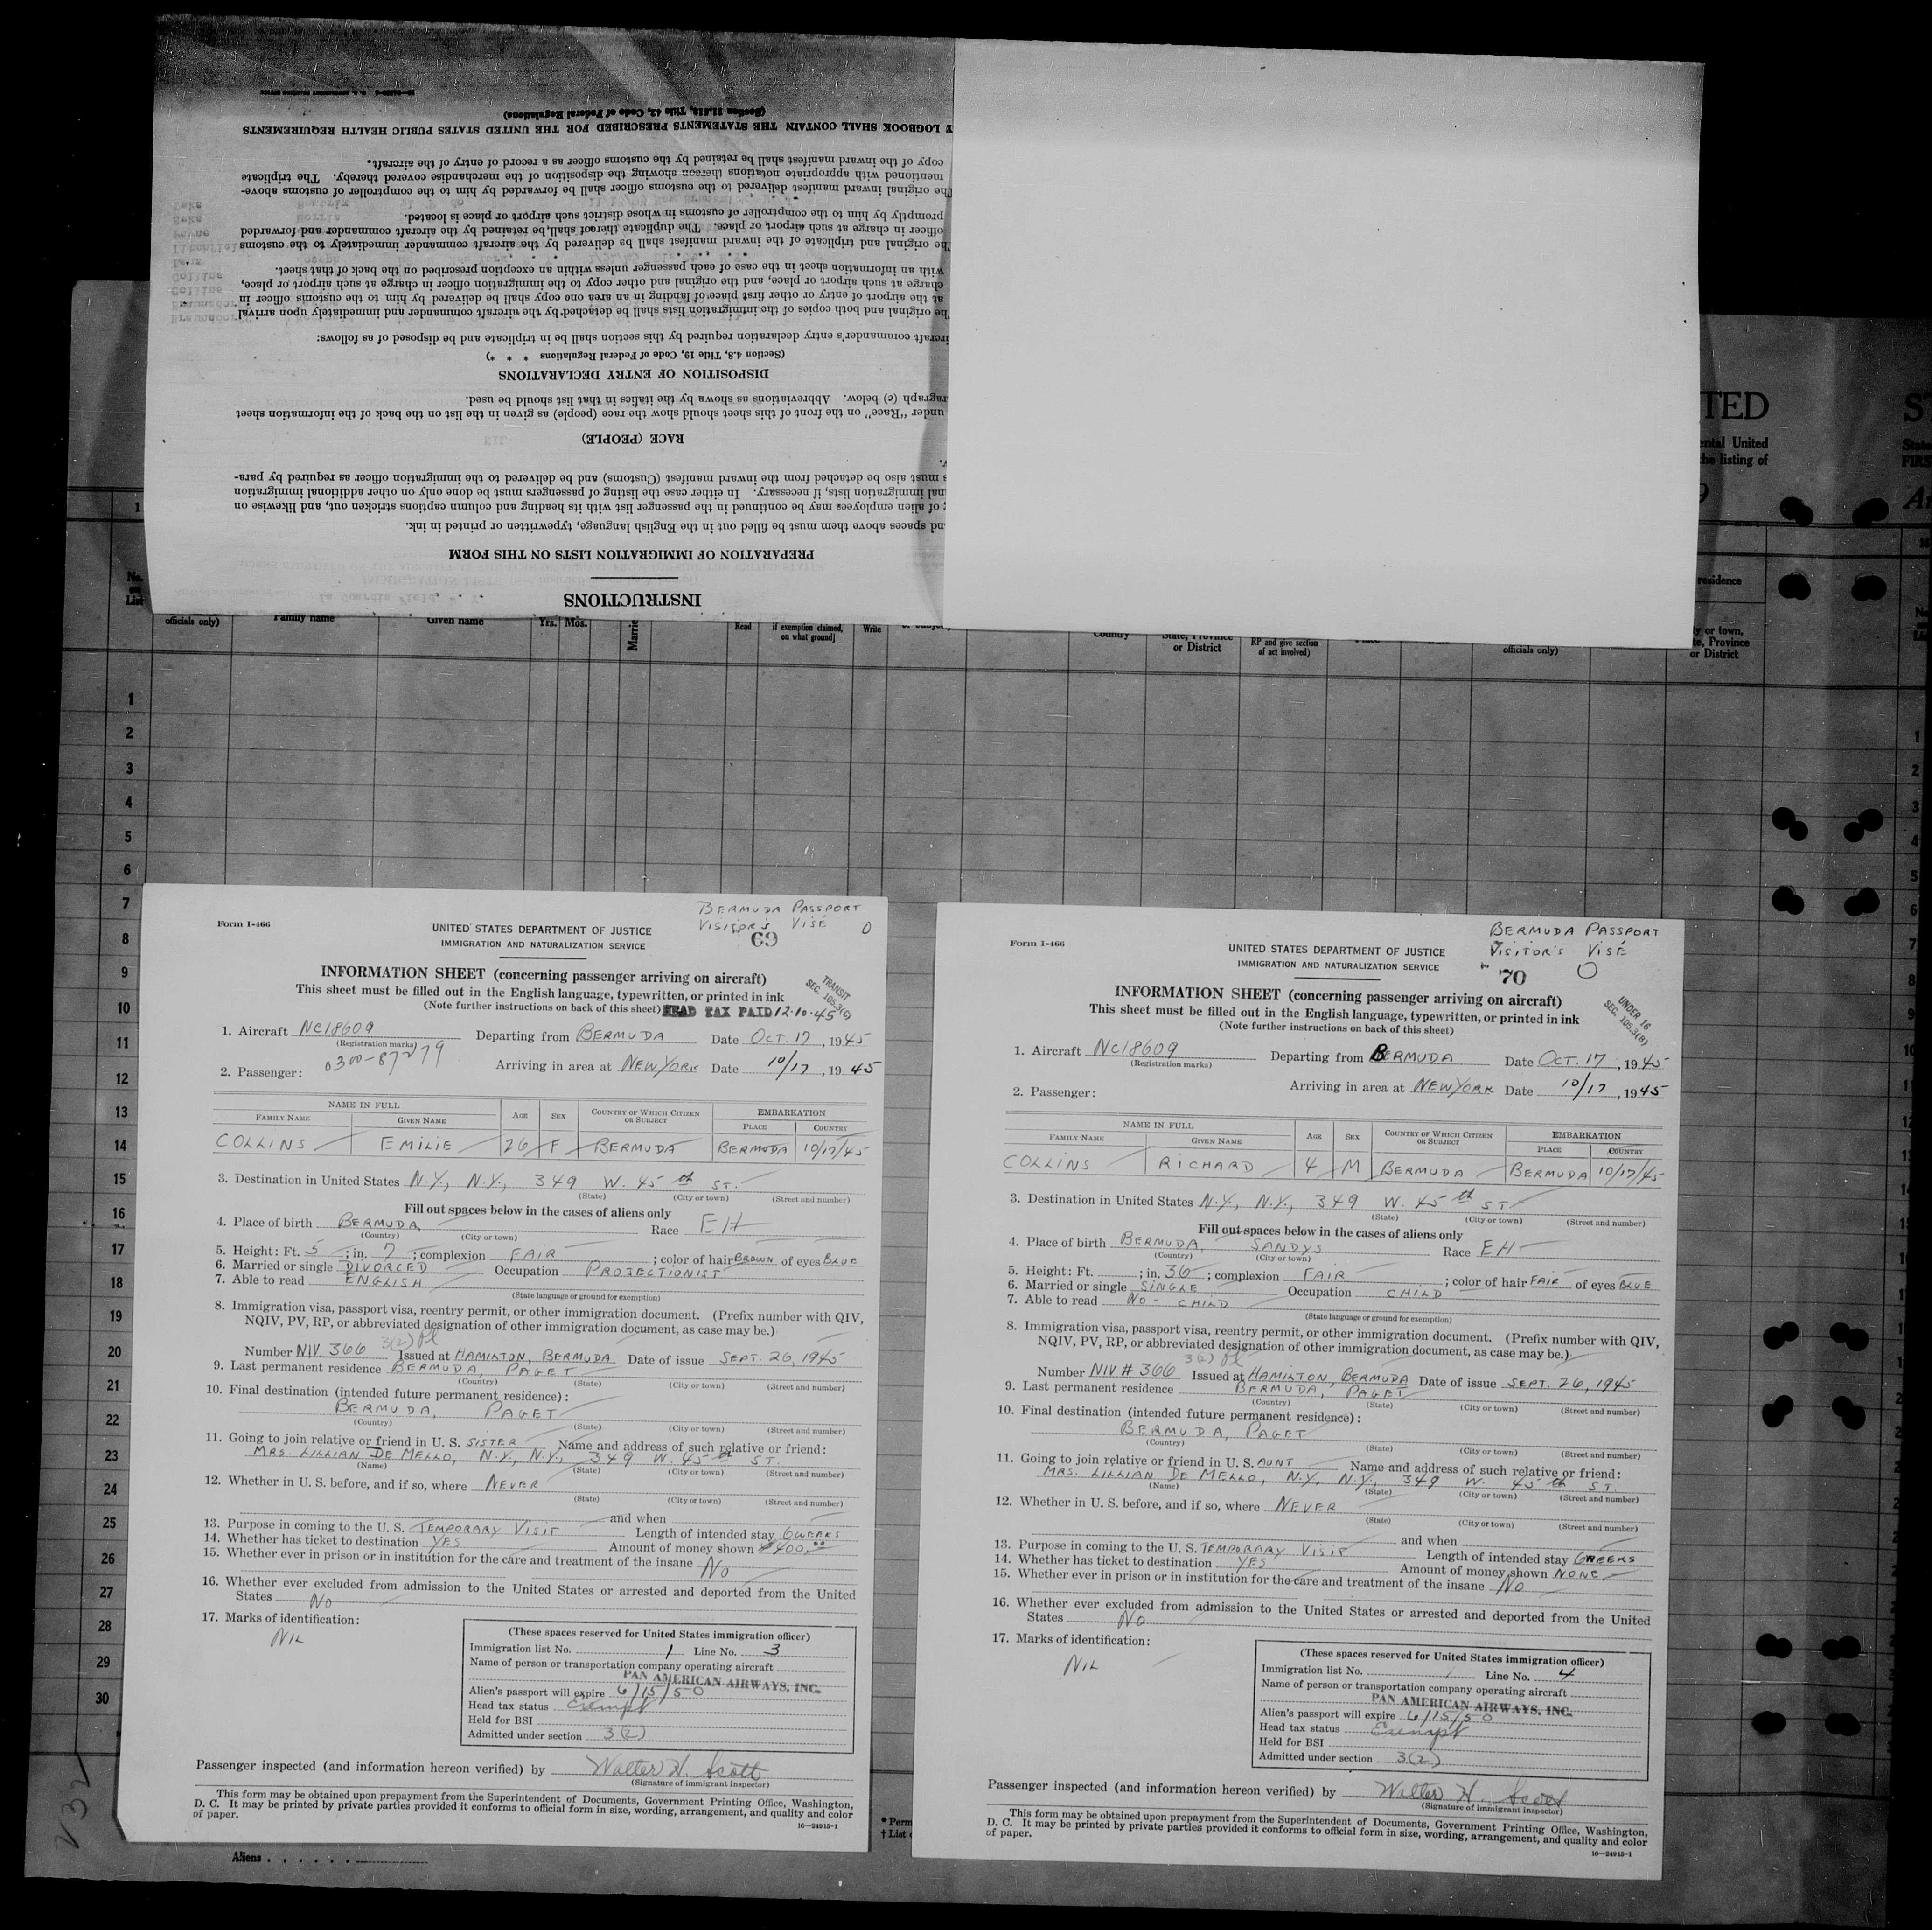 INSTRUCTIONS
PREPARATION OF IMMIGRATION LISTS ON THIS FORM
nd spaces above them must be filled out in the English language, typewritten or printed in ink.
of alien employees may be continued in the passenger list with its heading and column captions stricken out, and likewise on
nal immigration lists, if necessary. In either case the listing of passengers must be done only on other additional immigration
s must also be detached from the inward manifest (Customs) and be delivered to the immigration officer as required by para-
RACE (PEOPLE)
under "Race" on the front of this sheet should show the race (people) as given in the list on the back of the information sheet
ragraph (e) below. Abbreviations as shown by the italics in that list should be used.
DISPOSITION OF ENTRY DECLARATIONS
(Section 4.8, Title 19, Code of Federal Regulations * * *)
ircraft commander's entry declaration required by this section shall be in triplicate and be disposed of as follows:
he original and both copies of the immigration lists shall be detached by the aircraft commander and immediately upon arrival
at the airport of entry or other first place of landing in an area one copy shall be delivered by him to the customs officer in
charge at such airport or place, and the original and other copy to the immigration officer in charge at such airport or place,
with an information sheet in the case of each passenger unless within an exception prescribed on the back of that sheet.
he original and triplicate of the inward manifest shall be delivered by the aircraft commander immediately to the customs
officer in charge at such airport or place. The duplicate thereof shall be retained by the aircraft commander and forwarded
promptly by him to the comptroller of customs in whose district such airport or place is located.
he original inward manifest delivered to the customs officer shall be forwarded by him to the comptroller of customs above-
mentioned with appropriate notations thereon showing the disposition of the merchandise covered thereby. The triplicate
copy of the inward manifest shall be retained by the customs officer as a record of entry of the aircraft.
Y LOGBOOK SHALL CONTAIN THE STATEMENTS PRESCRIBED FOR THE UNITED STATES PUBLIC HEALTH REQUIREMENTS
(Section 11.513, Title 42, Code of Federal Regulations)
TED
ental United
the listing of
No. on List
officials only) Family name Given name Yrs. Mos. Read if exemption claimed, on what ground] Write Country State, Province or District RP and give section of act involved) officials only) y or town, te, Province or District
residence
1
2
3
4
5
6
7
8
9
10
11
12
13
14
15
16
17
18
19
20
21
22
23
24
25
26
27
28
29
30
Aliens
232
BERMUDA PASSPORT
VISITOR'S VISÉ 0
Form I-466
UNITED STATES DEPARTMENT OF JUSTICE
69
IMMIGRATION AND NATURALIZATION SERVICE
INFORMATION SHEET (concerning passenger arriving on aircraft)
TRANSIT
SEC. 105.3(g)
This sheet must be filled out in the English language, typewritten, or printed in ink
(Note further instructions on back of this sheet) HEAD TAX PAID 12-10-45
1. Aircraft NC18609 Departing from BERMUDA Date OCT. 17, 1945
(Registration marks)
0300-87279
2. Passenger: Arriving in area at NEW YORK Date 10/17, 1945
NAME IN FULL AGE SEX COUNTRY OF WHICH CITIZEN OR SUBJECT EMBARKATION
FAMILY NAME GIVEN NAME PLACE COUNTRY
COLLINS EMILIE 26 F BERMUDA BERMUDA 10/17/45
3. Destination in United States N.Y., N.Y., 349 W. 45th ST.
(State) (City or town) (Street and number)
Fill out spaces below in the cases of aliens only
4. Place of birth BERMUDA, Race EH
(Country) (City or town)
5. Height: Ft. 5; in. 7; complexion FAIR; color of hair BROWN of eyes BLUE
6. Married or single DIVORCED Occupation PROJECTIONIST
7. Able to read ENGLISH
(State language or ground for exemption)
8. Immigration visa, passport visa, reentry permit, or other immigration document. (Prefix number with QIV,
NQIV, PV, RP, or abbreviated designation of other immigration document, as case may be.)
3(2)
Number NIV 366 Issued at HAMILTON, BERMUDA Date of issue SEPT. 26, 1945
9. Last permanent residence BERMUDA, PAGET
(Country) (State) (City or town) (Street and number)
10. Final destination (intended future permanent residence):
BERMUDA, PAGET
(Country) (State) (City or town) (Street and number)
11. Going to join relative or friend in U. S. SISTER Name and address of such relative or friend:
MRS. LILLIAN DE MELLO, N.Y., N.Y., 349 W. 45th ST.
(Name) (State) (City or town) (Street and number)
12. Whether in U. S. before, and if so, where NEVER
(State) (City or town) (Street and number)
and when
13. Purpose in coming to the U. S. TEMPORARY VISIT Length of intended stay 6 WEEKS
14. Whether has ticket to destination YES Amount of money shown $400.00
15. Whether ever in prison or in institution for the care and treatment of the insane NO
16. Whether ever excluded from admission to the United States or arrested and deported from the United
States NO
17. Marks of identification:
NIL
(These spaces reserved for United States immigration officer)
Immigration list No. 1 Line No. 3
Name of person or transportation company operating aircraft
PAN AMERICAN AIRWAYS, INC.
Alien's passport will expire 6/15/50
Head tax status Exempt
Held for BSI
Admitted under section 3(2)
Passenger inspected (and information hereon verified) by Walter H. Scott
(Signature of immigrant inspector)
This form may be obtained upon prepayment from the Superintendent of Documents, Government Printing Office, Washington,
D. C. It may be printed by private parties provided it conforms to official form in size, wording, arrangement, and quality and color
of paper.
16—24915-1
* Perm
† List
BERMUDA PASSPORT
VISITOR'S VISÉ
Form I-466
UNITED STATES DEPARTMENT OF JUSTICE
70 0
IMMIGRATION AND NATURALIZATION SERVICE
INFORMATION SHEET (concerning passenger arriving on aircraft)
UNDER 16
SEC. 105.3(8)
This sheet must be filled out in the English language, typewritten, or printed in ink
(Note further instructions on back of this sheet)
1. Aircraft NC18609 Departing from BERMUDA Date OCT. 17, 1945
(Registration marks)
2. Passenger: Arriving in area at NEW YORK Date 10/17, 1945
NAME IN FULL AGE SEX COUNTRY OF WHICH CITIZEN OR SUBJECT EMBARKATION
FAMILY NAME GIVEN NAME PLACE COUNTRY
COLLINS RICHARD 4 M BERMUDA BERMUDA 10/17/45
3. Destination in United States N.Y., N.Y., 349 W. 45th ST
(State) (City or town) (Street and number)
Fill out spaces below in the cases of aliens only
4. Place of birth BERMUDA, SANDYS Race EH
(Country) (City or town)
5. Height: Ft. ; in. 36; complexion FAIR; color of hair FAIR of eyes BLUE
6. Married or single SINGLE Occupation CHILD
7. Able to read NO - CHILD
(State language or ground for exemption)
8. Immigration visa, passport visa, reentry permit, or other immigration document. (Prefix number with QIV,
NQIV, PV, RP, or abbreviated designation of other immigration document, as case may be.)
3(2)
Number NIV # 366 Issued at HAMILTON, BERMUDA Date of issue SEPT. 26, 1945
9. Last permanent residence BERMUDA, PAGET
(Country) (State) (City or town) (Street and number)
10. Final destination (intended future permanent residence):
BERMUDA, PAGET
(Country) (State) (City or town) (Street and number)
11. Going to join relative or friend in U. S. AUNT Name and address of such relative or friend:
MRS. LILLIAN DE MELLO, N.Y., N.Y., 349 W. 45th ST.
(Name) (State) (City or town) (Street and number)
12. Whether in U. S. before, and if so, where NEVER
(State) (City or town) (Street and number)
and when
13. Purpose in coming to the U. S. TEMPORARY VISIT Length of intended stay 6 WEEKS
14. Whether has ticket to destination YES Amount of money shown NONE
15. Whether ever in prison or in institution for the care and treatment of the insane NO
16. Whether ever excluded from admission to the United States or arrested and deported from the United
States NO
17. Marks of identification:
NIL
(These spaces reserved for United States immigration officer)
Immigration list No. 1 Line No. 4
Name of person or transportation company operating aircraft
PAN AMERICAN AIRWAYS, INC.
Alien's passport will expire 6/15/50
Head tax status Exempt
Held for BSI
Admitted under section 3(2)
Passenger inspected (and information hereon verified) by Walter H. Scott
(Signature of immigrant inspector)
This form may be obtained upon prepayment from the Superintendent of Documents, Government Printing Office, Washington,
D. C. It may be printed by private parties provided it conforms to official form in size, wording, arrangement, and quality and color
of paper.
16—24915-1